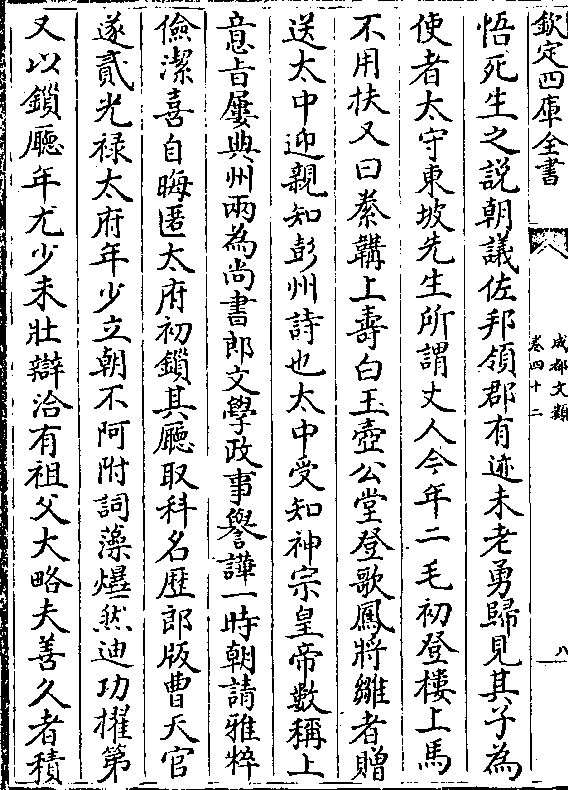 欽定四庫全書
成都文類
卷四十二
八
悟死生之説朝議佐邦領郡有迹未老勇歸見其子為
使者太守東坡先生所謂丈人今年二毛初登樓上馬
不用扶又曰豢韝上壽白玉壺公堂登歌鳳將雛者贈
送太中迎親知彭州詩也太中受知神宗皇帝數稱上
意㫖屢典州兩為尚書郎文學政事譽譁一時朝請雅粹
儉潔喜自晦匿太府初鎖其㕔取科名歴郎版曹天官
遂貳光禄太府年少立朝不阿附詞藻爗然迪功擢第
又以鎖㕔年尤少未壯辯洽有祖父大略夫善久者積